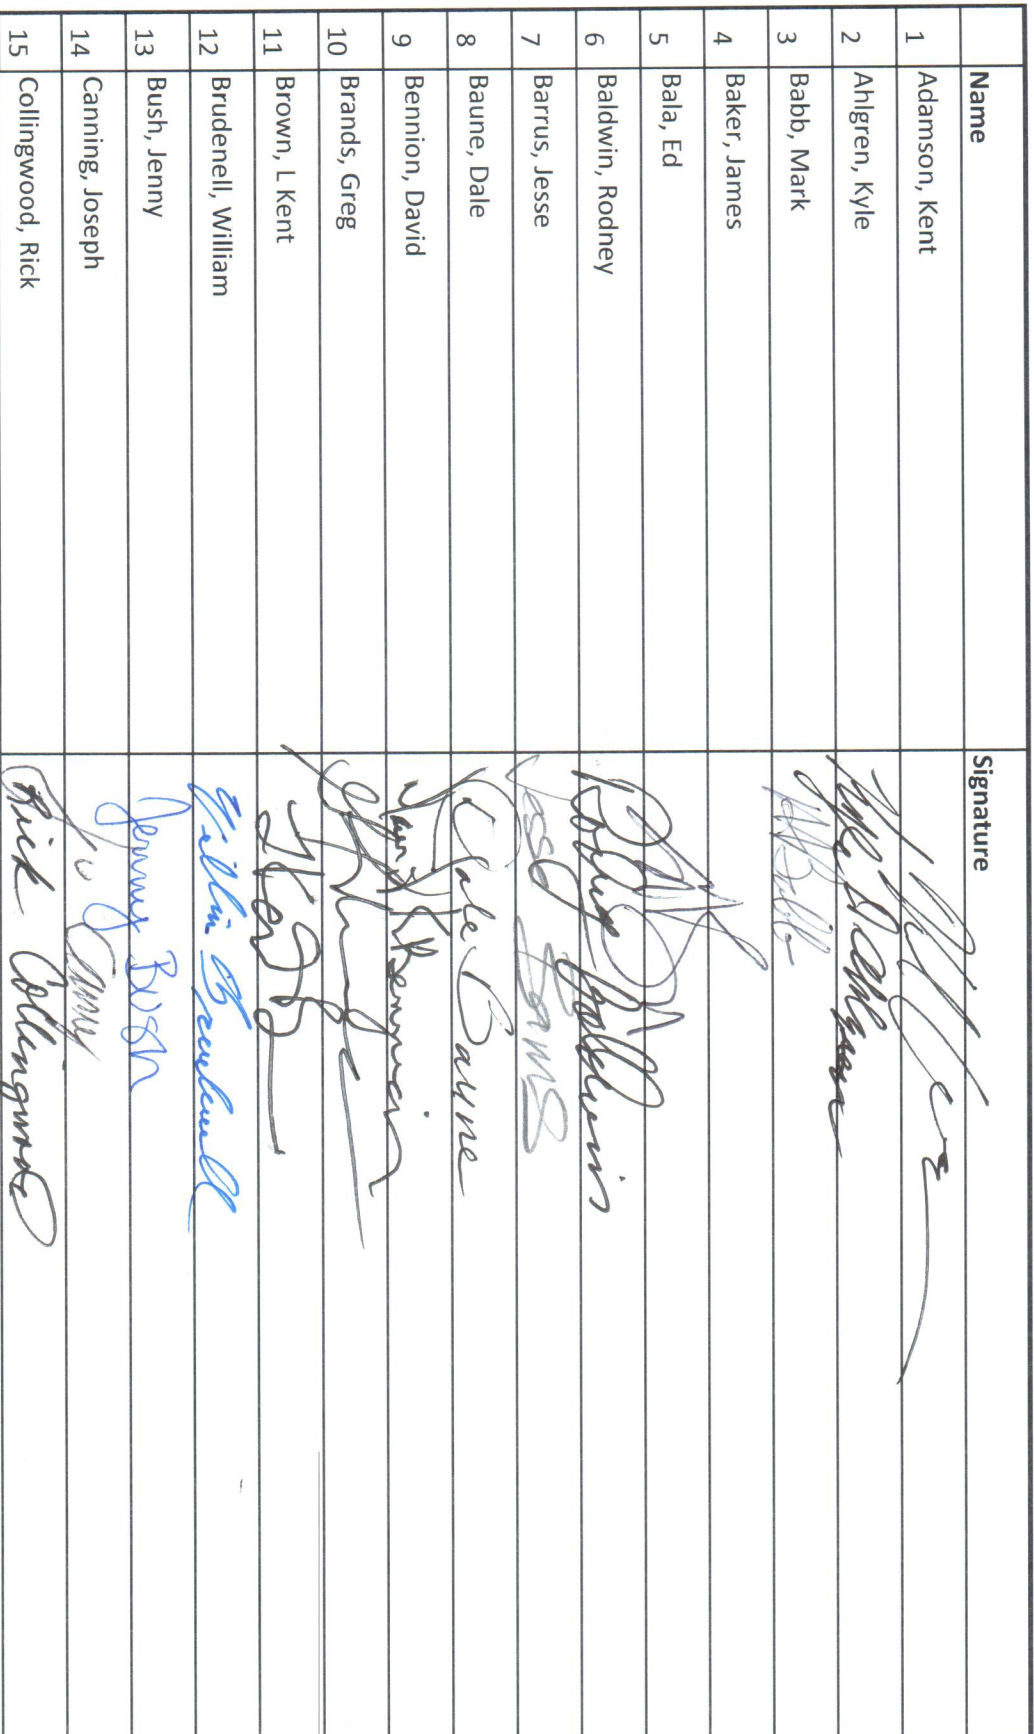 Name Signature
1 Adamson, Kent
2 Ahlgren, Kyle Kyle D. Ahlgren
3 Babb, Mark
4 Baker, James
5 Bala, Ed
6 Baldwin, Rodney Rodney Baldwin
7 Barrus, Jesse Jesse
8 Baune, Dale Dale Baune
9 Bennion, David David K Bennion
10 Brands, Greg
11 Brown, L Kent
12 Brudenell, William William Brudenell
13 Bush, Jenny Jenny Bush
14 Canning, Joseph
15 Collingwood, Rick Rick Collingwood